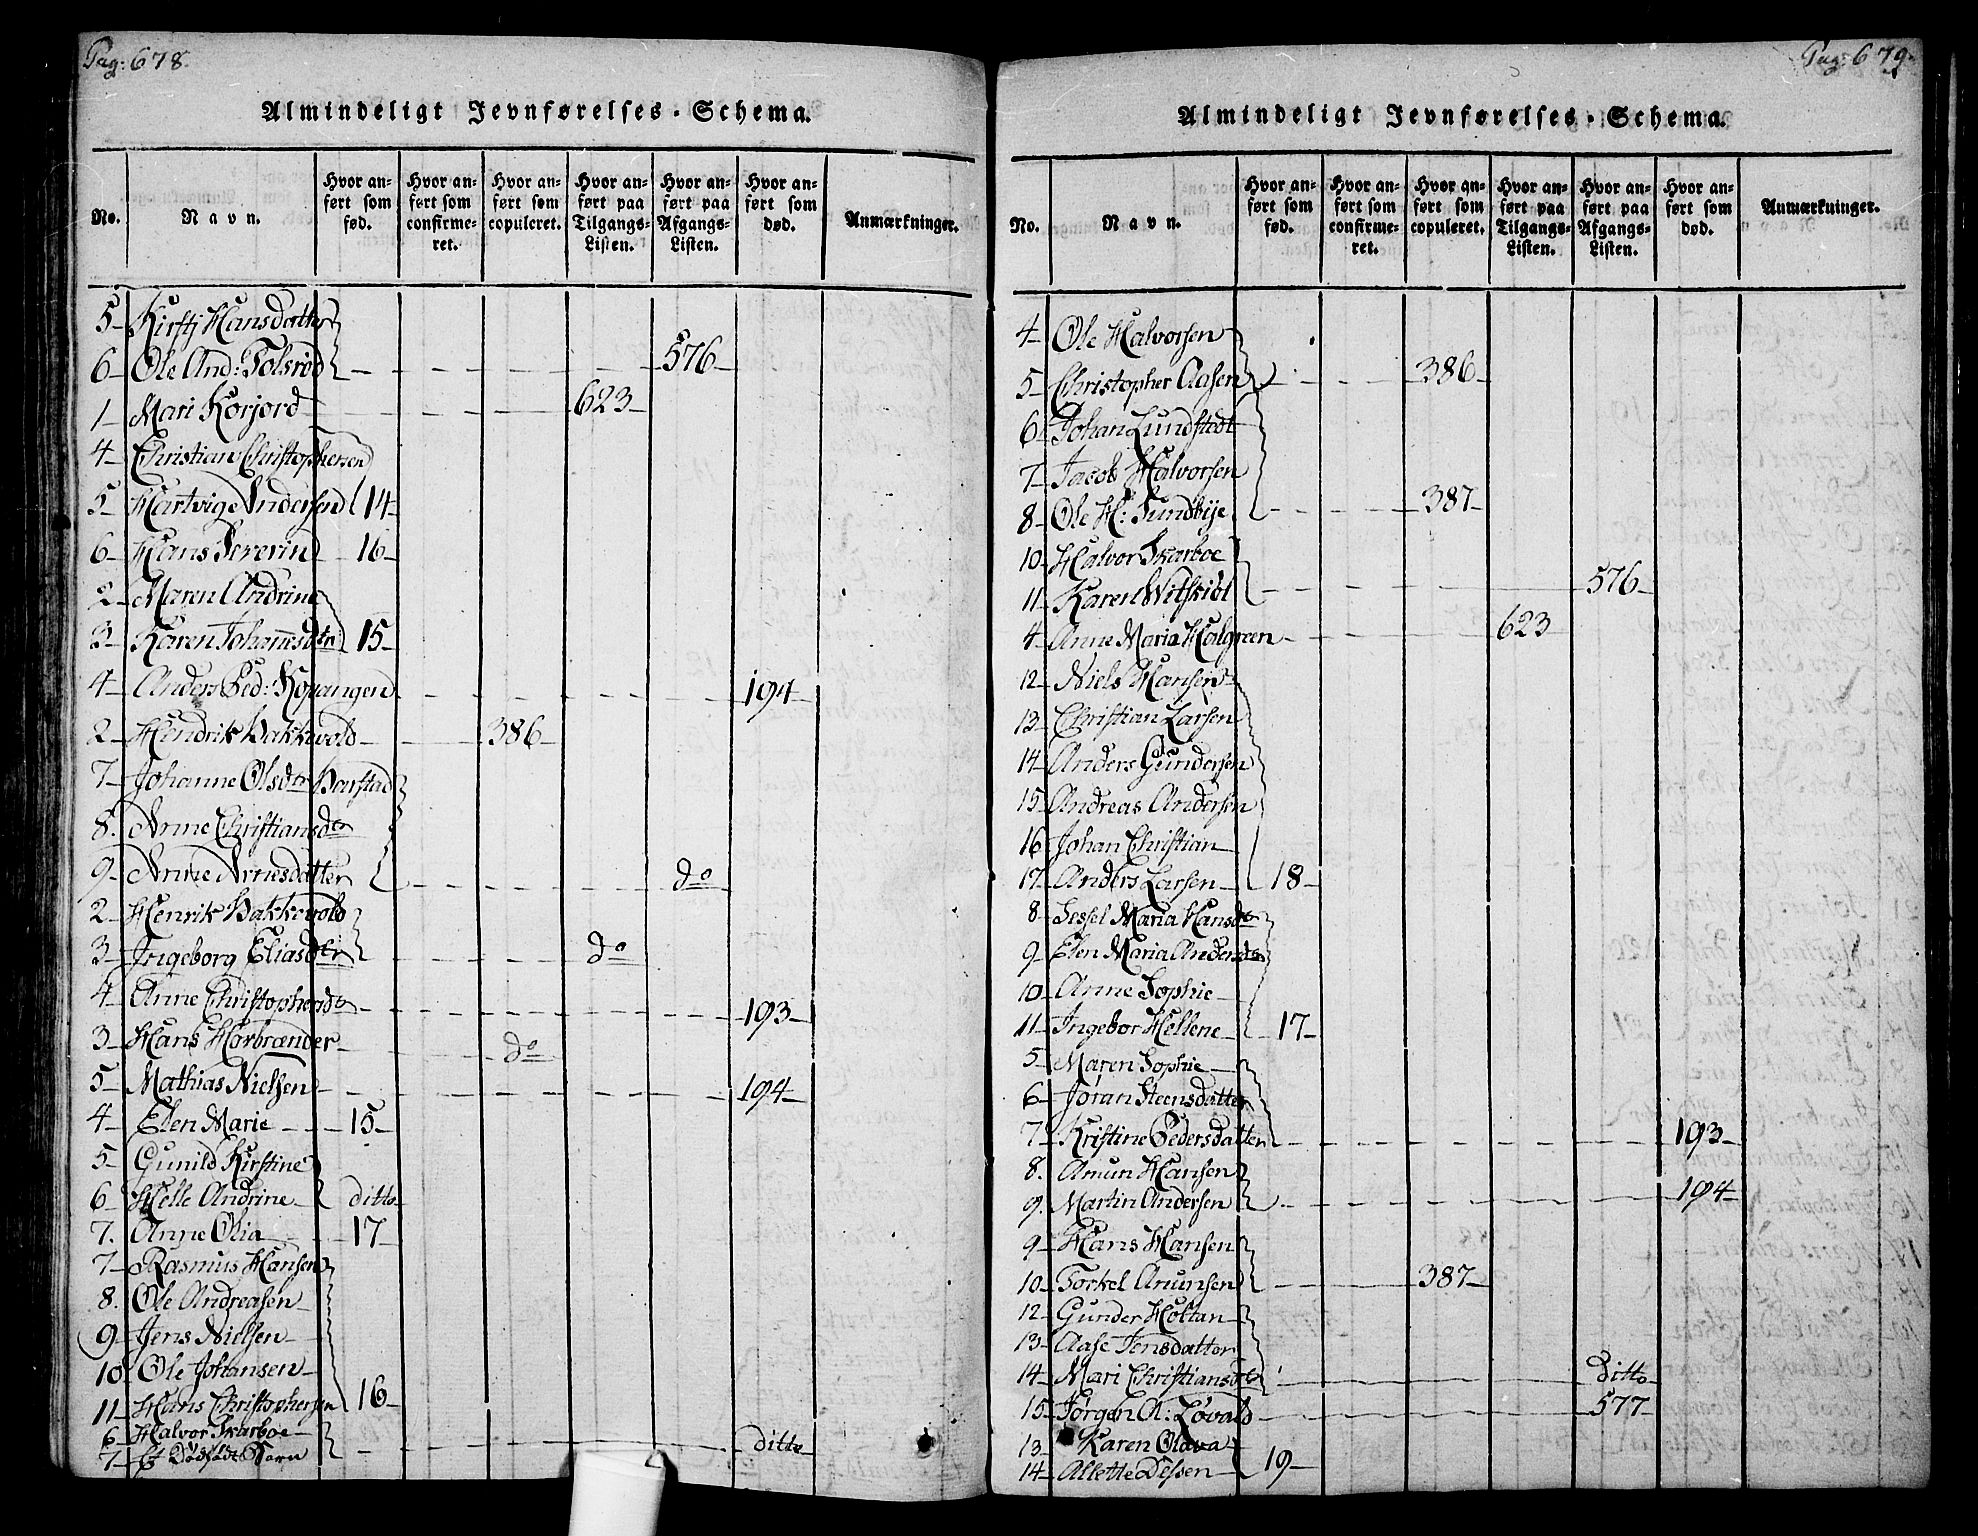 Pag: 678.
Almindeligt Jevnførelses-Schema.
No. Navn. Hvor anført som fød. Hvor anført som confirmeret. Hvor anført som copuleret. Hvor anført paa Tilgangs-Listen. Hvor anført paa Afgangs-Listen. Hvor anført som død. Anmærkninger.
5 Kirstj Hansdatter
6 Ole And: Tolsrød 576
1 Mari Korjord 623
4 Christian Christophersen
5 Hartvig Andersen 14
6 Hans Severin 16
2 Maren Andrine
3 Karen Johannesdtr 15
4 Anders Ped: 194
2 Hendrik Bakkevold 386
7 Johanne Olsdtr Barstad
8. Anne Christiansdtr
9 Anne Arnesdatter do
2 Henrik Bakkevold
3 Ingeborg Eliasdtr do
4 Anne Christophersdtr 193
3 Hans Horbrænder do
5 Mathias Nielsen 194
4 Elen Marie 15
5 Gunild Kirstine
6 Helle Andrine ditto
7. Anne Olia 17
7 Rasmus Hansen
8. Ole Andreasen
9 Jens Nielsen
10 Ole Johansen
11 Hans Christophersen 16
6 Halvor Skarboe
7 Et Dødfødt Barn ditto
Pag: 679.
Almindeligt Jevnførelses-Schema.
No. Navn. Hvor anført som fød. Hvor anført som confirmeret. Hvor anført som copuleret. Hvor anført paa Tilgangs-Listen. Hvor anført paa Afgangs-Listen. Hvor anført som død. Anmærkninger.
4 Ole Halvorsen
5 Christopher Aasen 386
6 Johan Lundstedt
7 Jacob Halvorsen
8 Ole H: Sundbye 387
10 Halvor Skarboe
11 Karen Witskiøl 576
4 Anne Maria Holgreen 623
12 Niels Hansen
13 Christian Larsen
14 Anders Gundersen
15 Andreas Andersen
16 Johan Christian
17 Anders Larsen 18
8 Sessel Maria Hansdtr
9 Elen Maria Andersdtr
10 Anne Sophie
11 Ingebor Hellene 17
5 Maren Sophie
6 Jøran Steensdatter
7 Kristine Pedersdatter 193
8. Amun Hansen
9. Martin Andersen 194
9 Hans Hansen
10 Torkel Amunsen 387
12 Gunder Holtan
13 Aase Jensdatter
14 Mari Christiansdtr ditto
15 Jørgen A: Løvald 577
13 Karen Olava
14 Allette 19